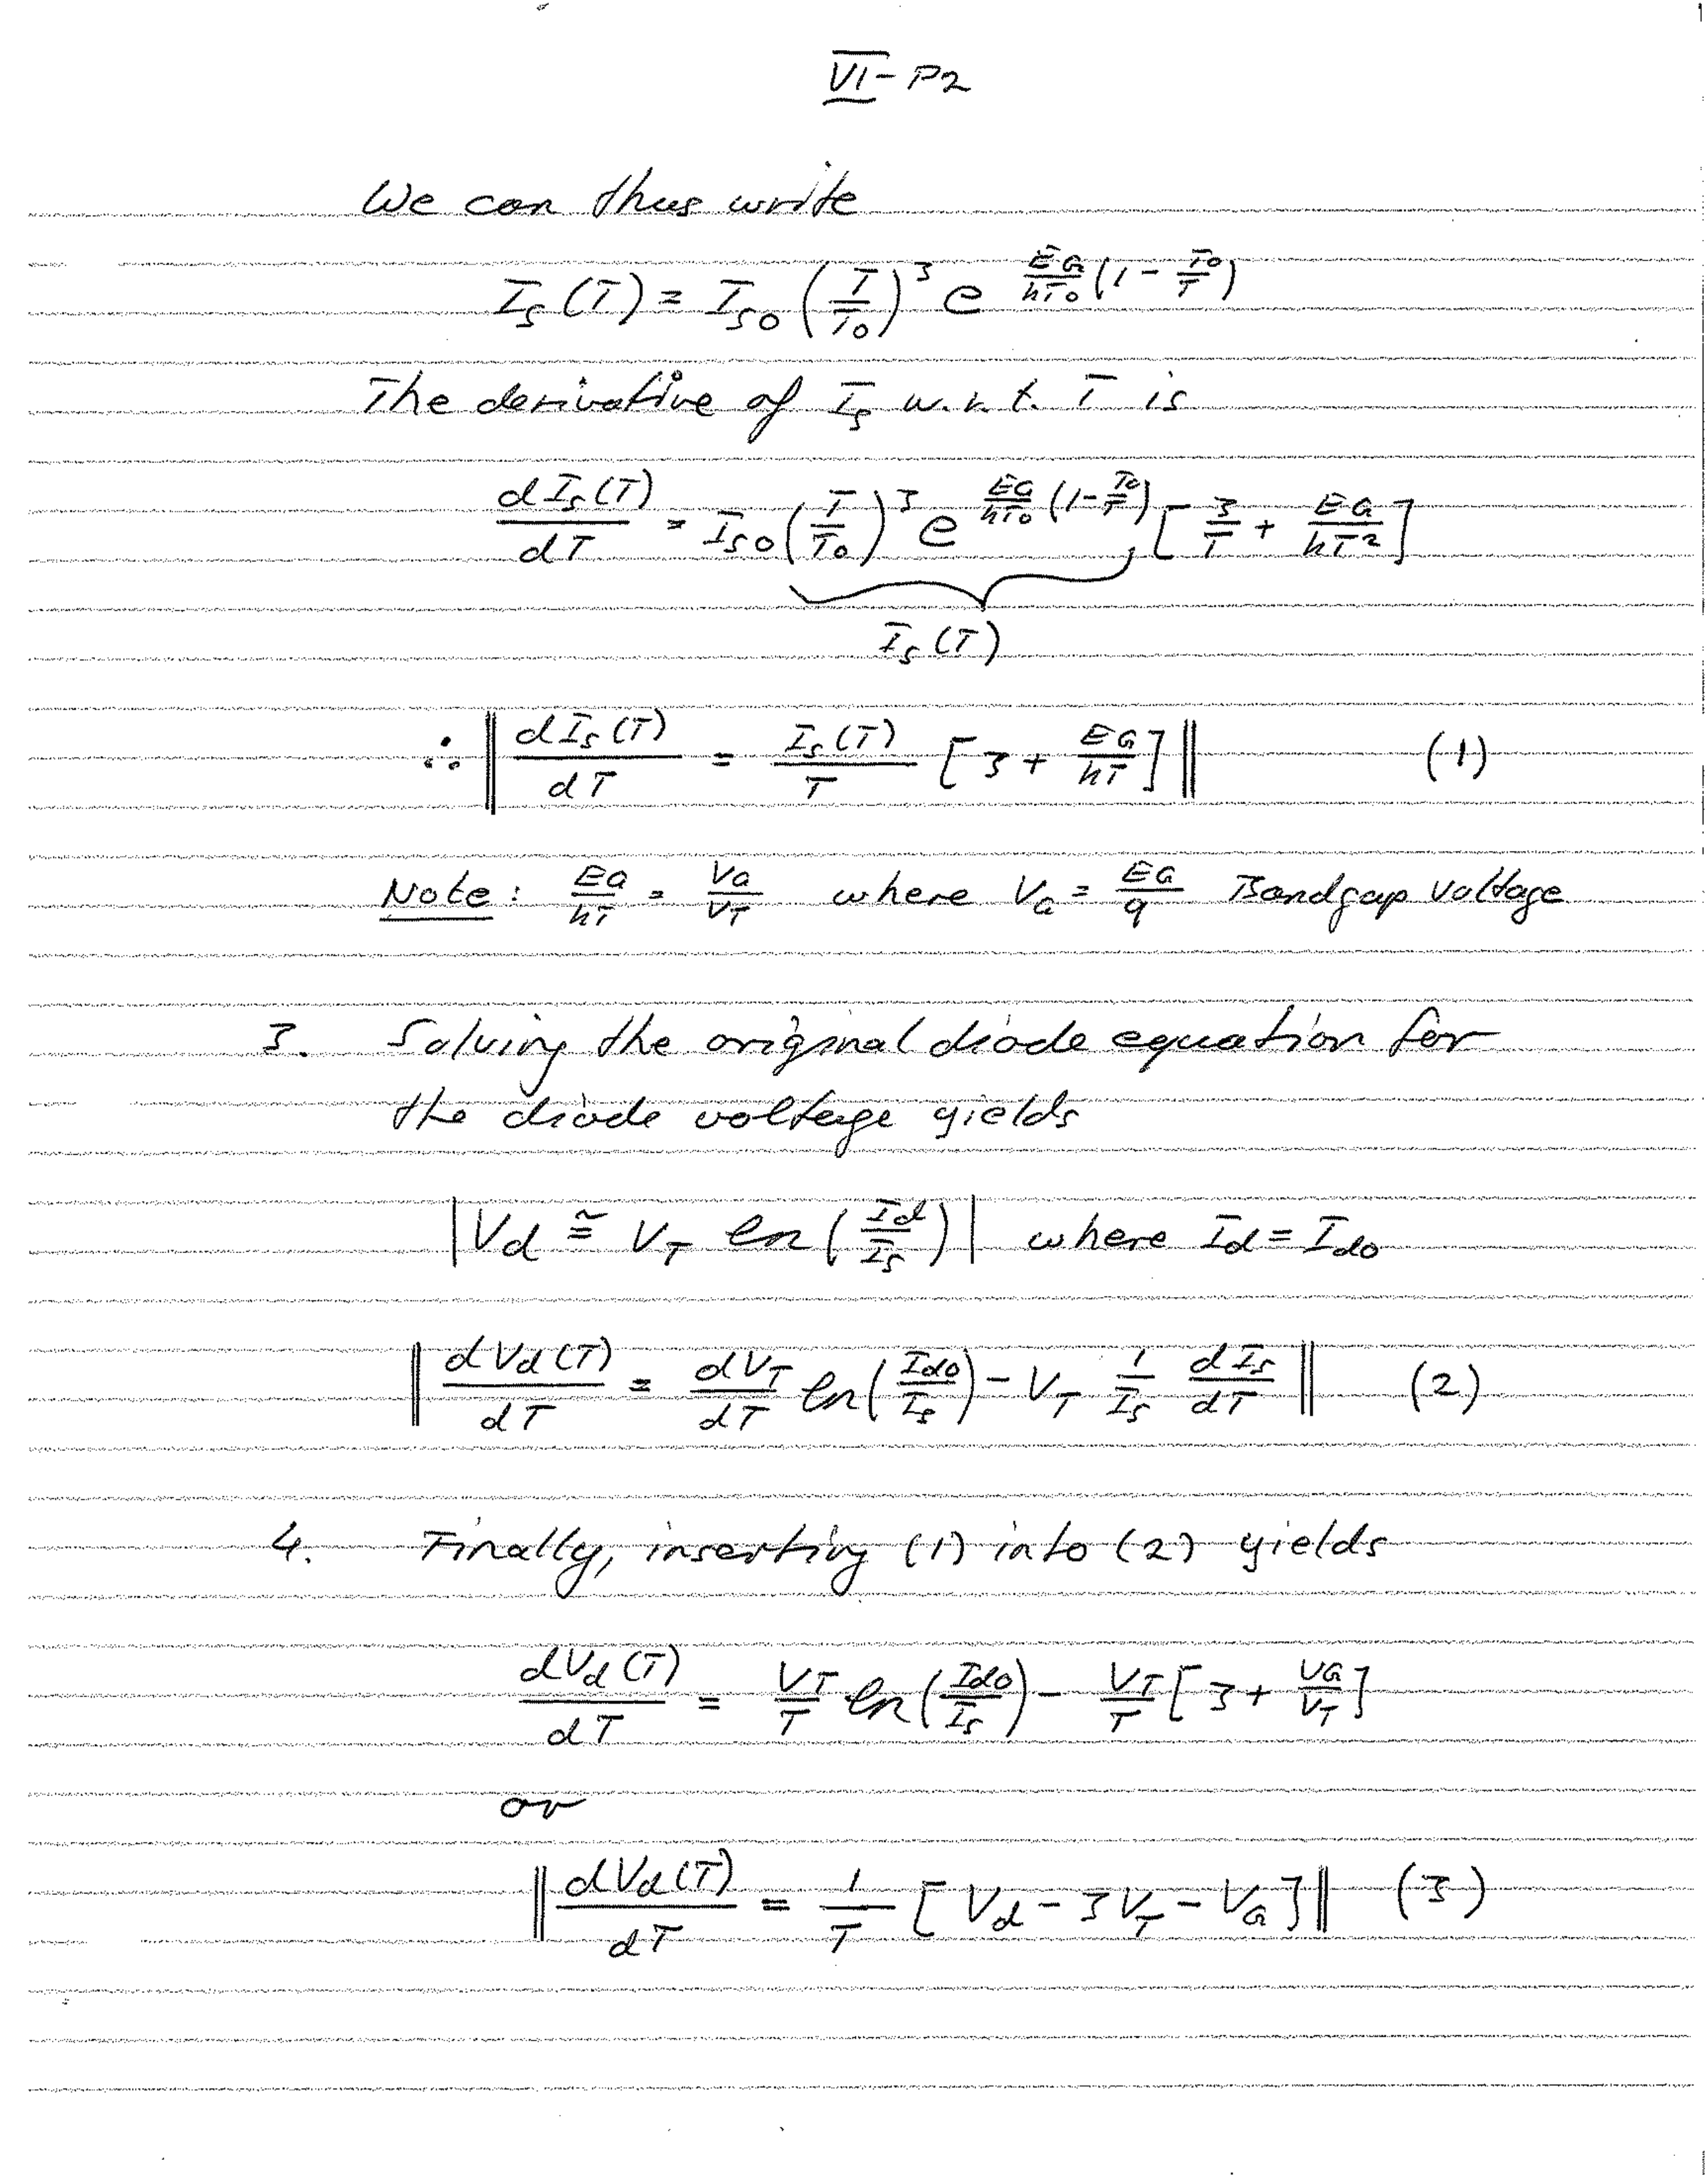 VI-P2
We can thus write
I_S(T) = I_S0 (T/T0)^3 e^{EG/kT0 (1 - T0/T)}
The derivative of I_S w.r.t. T is
dI_S(T)/dT = I_S0 (T/T0)^3 e^{EG/kT0 (1 - T0/T)} [3/T + EG/kT^2]
I_S(T)
∴ || dI_S(T)/dT = I_S(T)/T [3 + EG/kT] || (1)
Note: EG/kT = VG/VT where V_G = EG/q Bandgap Voltage
3. Solving the original diode equation for
the diode voltage yields
| V_d ≅ V_T ln(I_d/I_S) | where I_d = I_d0
|| dV_d(T)/dT = dV_T/dT ln(I_d0/I_S) - V_T 1/I_S dI_S/dT || (2)
4. Finally, inserting (1) into (2) yields
dV_d(T)/dT = V_T/T ln(I_d0/I_S) - V_T/T [3 + V_G/V_T]
or
|| dV_d(T)/dT = 1/T [V_d - 3V_T - V_G] || (3)